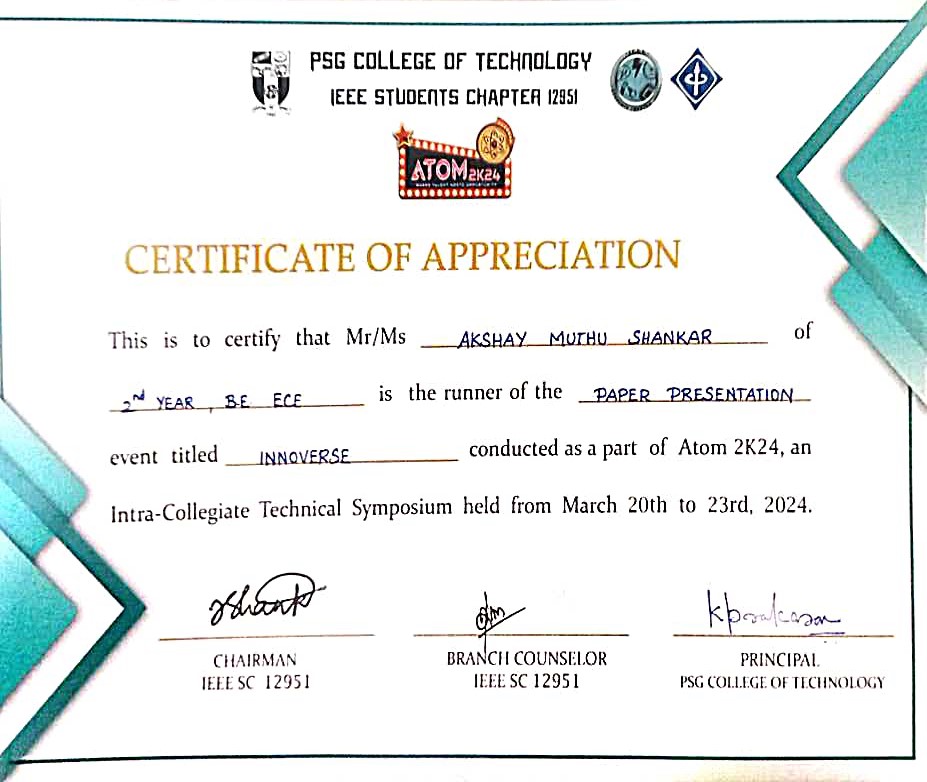 PSG COLLEGE OF TECHNOLOGY
IEEE STUDENTS CHAPTER 12951
ATOM 2K24
CERTIFICATE OF APPRECIATION
This is to certify that Mr/Ms AKSHAY MUTHU SHANKAR of
2nd YEAR, BE ECE is the runner of the PAPER PRESENTATION
event titled INNOVERSE conducted as a part of Atom 2K24, an
Intra-Collegiate Technical Symposium held from March 20th to 23rd, 2024.
CHAIRMAN
IEEE SC 12951
BRANCH COUNSELOR
IEEE SC 12951
PRINCIPAL
PSG COLLEGE OF TECHNOLOGY